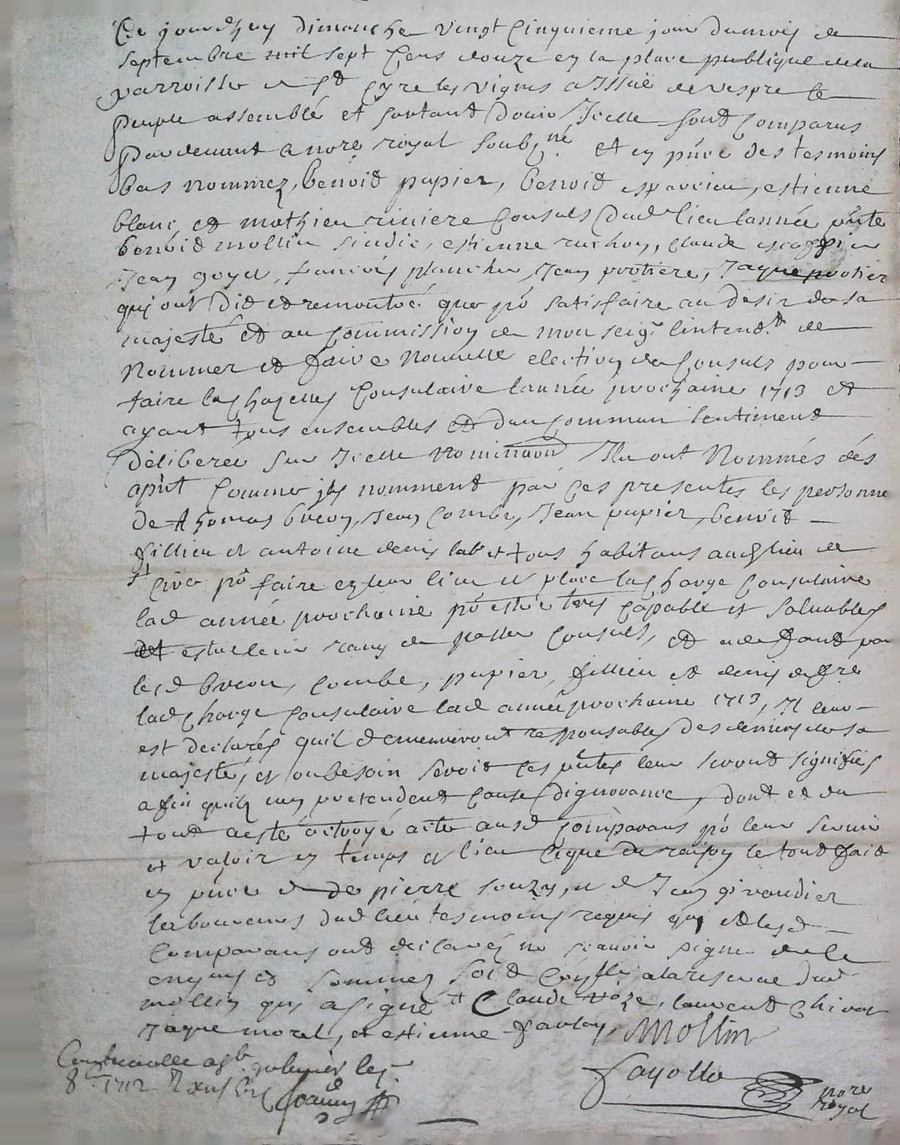 Ce jourdhuy dimanche vingt cinquieme jour du mois de
septembre mil sept cens douze en la place publique de la
parroisse de st cyre les vignes a issüe de vespre le
peuple assemblé et sortant d'ouir Icelle sont comparus
pardevant le nore royal soubzné et en pñce des tesmoins
bas nommez, benoid papier, benoid esparcieu, estienne
blanc et mathieu riviere consuls dud lieu lannée pñte
benoid mollin sindic, estienne ruchon, claude
Jean goyet, francois planchet, Jean protiere, Jaque protier
qui ont Dit et remontré que po satisfaire au desir de sa
majesté et au commission de monseigr lintendt de
Nommer et faire nouvelle election de consuls pour
faire la charge consulaire lannée prochaine 1713 et
ayant tous ensembles et dun commun sentiment
déliberee sur Icelle nominaon Ils ont Nommés dés
apñt comme ils nomment par ces presentes les personne
De thomas brun, Jean combe, Jean papier, benoid
fillieu et antoine denis labr et tous habitans aud lieu de
st Cire po faire en leur lieu et place la charge consulaire
lad année prochaine po estre tres capable et solvables
et estre leur rang de passer consuls, et a defaut par
lesd brun, combe, papier, fillieu et denis de fre
lad charge consulaire lad année prochaine 1713, Il leur
est declarés quil demeureront responsables des deniers de sa
majesté, et ou besoin seroit ces pñtes leur seront signifiés
afin quils nen pretendent cause dignorance, dont et du
tout a esté octroyé acte ausd comparans po leur servir
et valoir en temps et lieu ce que de raison le tout faid
en pñce de de pierre souzy, et de Jean giraudier
laboureurs dud lieu tesmoins requis qui et lesd
comparans ont declarés ne scavoir signer de le
enquis et sommez soit a la reserve dud
mollin qui a signé et Claude roze, laurent chirat
Jaque morel, et estienne Mollin
Fayolle nore royal
Controolle a le
8e 1712